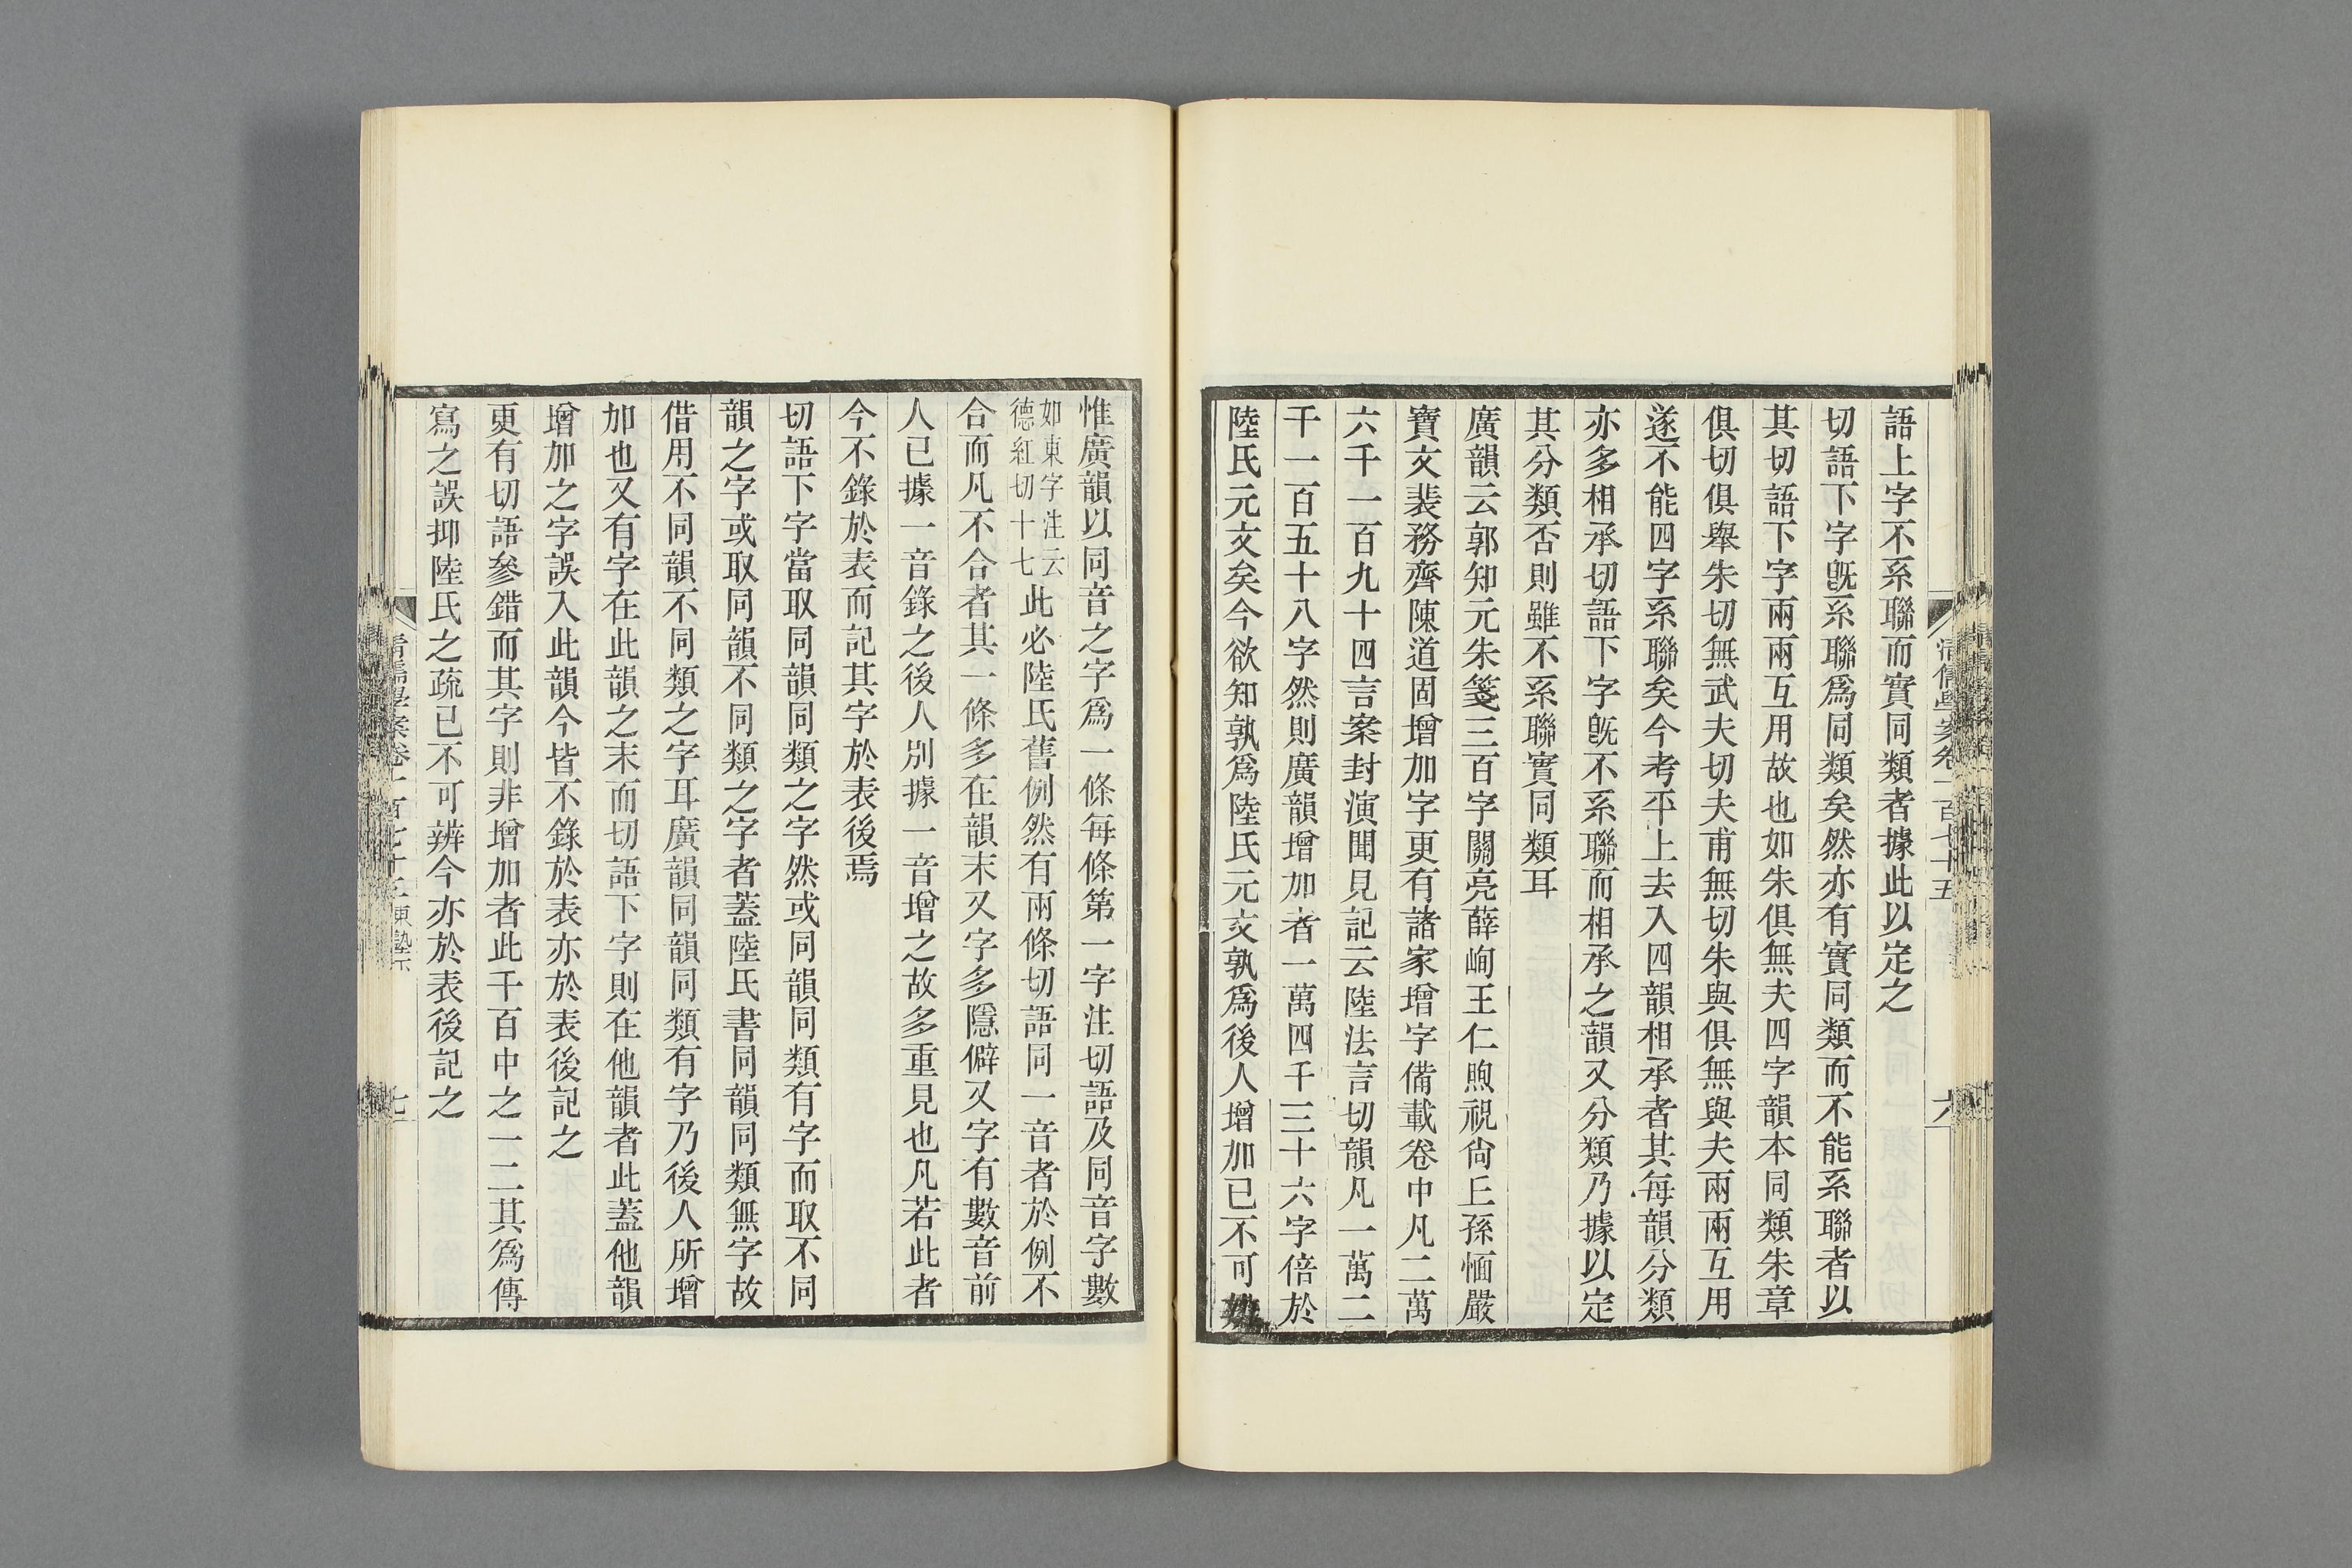 語上字不系聯而實同類者據此以定之
切語下字旣系聯爲同類矣然亦有實同類而不能系聯者以
其切語下字兩兩互用故也如朱俱無夫四字韻本同類朱章
俱切俱舉朱切無武夫切夫甫無切朱與俱無與夫兩兩互用
遂不能四字系聯矣今考平上去入四韻相承者其每韻分類
亦多相承切語下字旣不系聯而相承之韻又分類乃據以定
其分類否則雖不系聯實同類耳
廣韻云郭知元朱箋三百字關亮薛峋王仁煦祝尙丘孫愐嚴
寶文裴務齊陳道固增加字更有諸家增字備載卷中凡二萬
六千一百九十四言案封演聞見記云陸法言切韻凡一萬二
千一百五十八字然則廣韻增加者一萬四千三十六字倍於
陸氏元文矣今欲知孰爲陸氏元文孰爲後人增加已不可
惟廣韻以同音之字爲一條每條第一字注切語及同音字數
如東字注云
德紅切十七
此必陸氏舊例然有兩條切語同一音者於例不
合而凡不合者其一條多在韻末又字多隱僻又字有數音前
人已據一音錄之後人別據一音增之故多重見也凡若此者
今不錄於表而記其字於表後焉
切語下字當取同韻同類之字然或同韻同類有字而取不同
韻之字或取同韻不同類之字者蓋陸氏書同韻同類無字故
借用不同韻不同類之字耳廣韻同韻同類有字乃後人所增
加也又有字在此韻之末而切語下字則在他韻者此蓋他韻
增加之字誤入此韻今皆不錄於表亦於表後記之
更有切語參錯而其字則非增加者此千百中之一二其爲傳
寫之誤抑陸氏之疏已不可辨今亦於表後記之